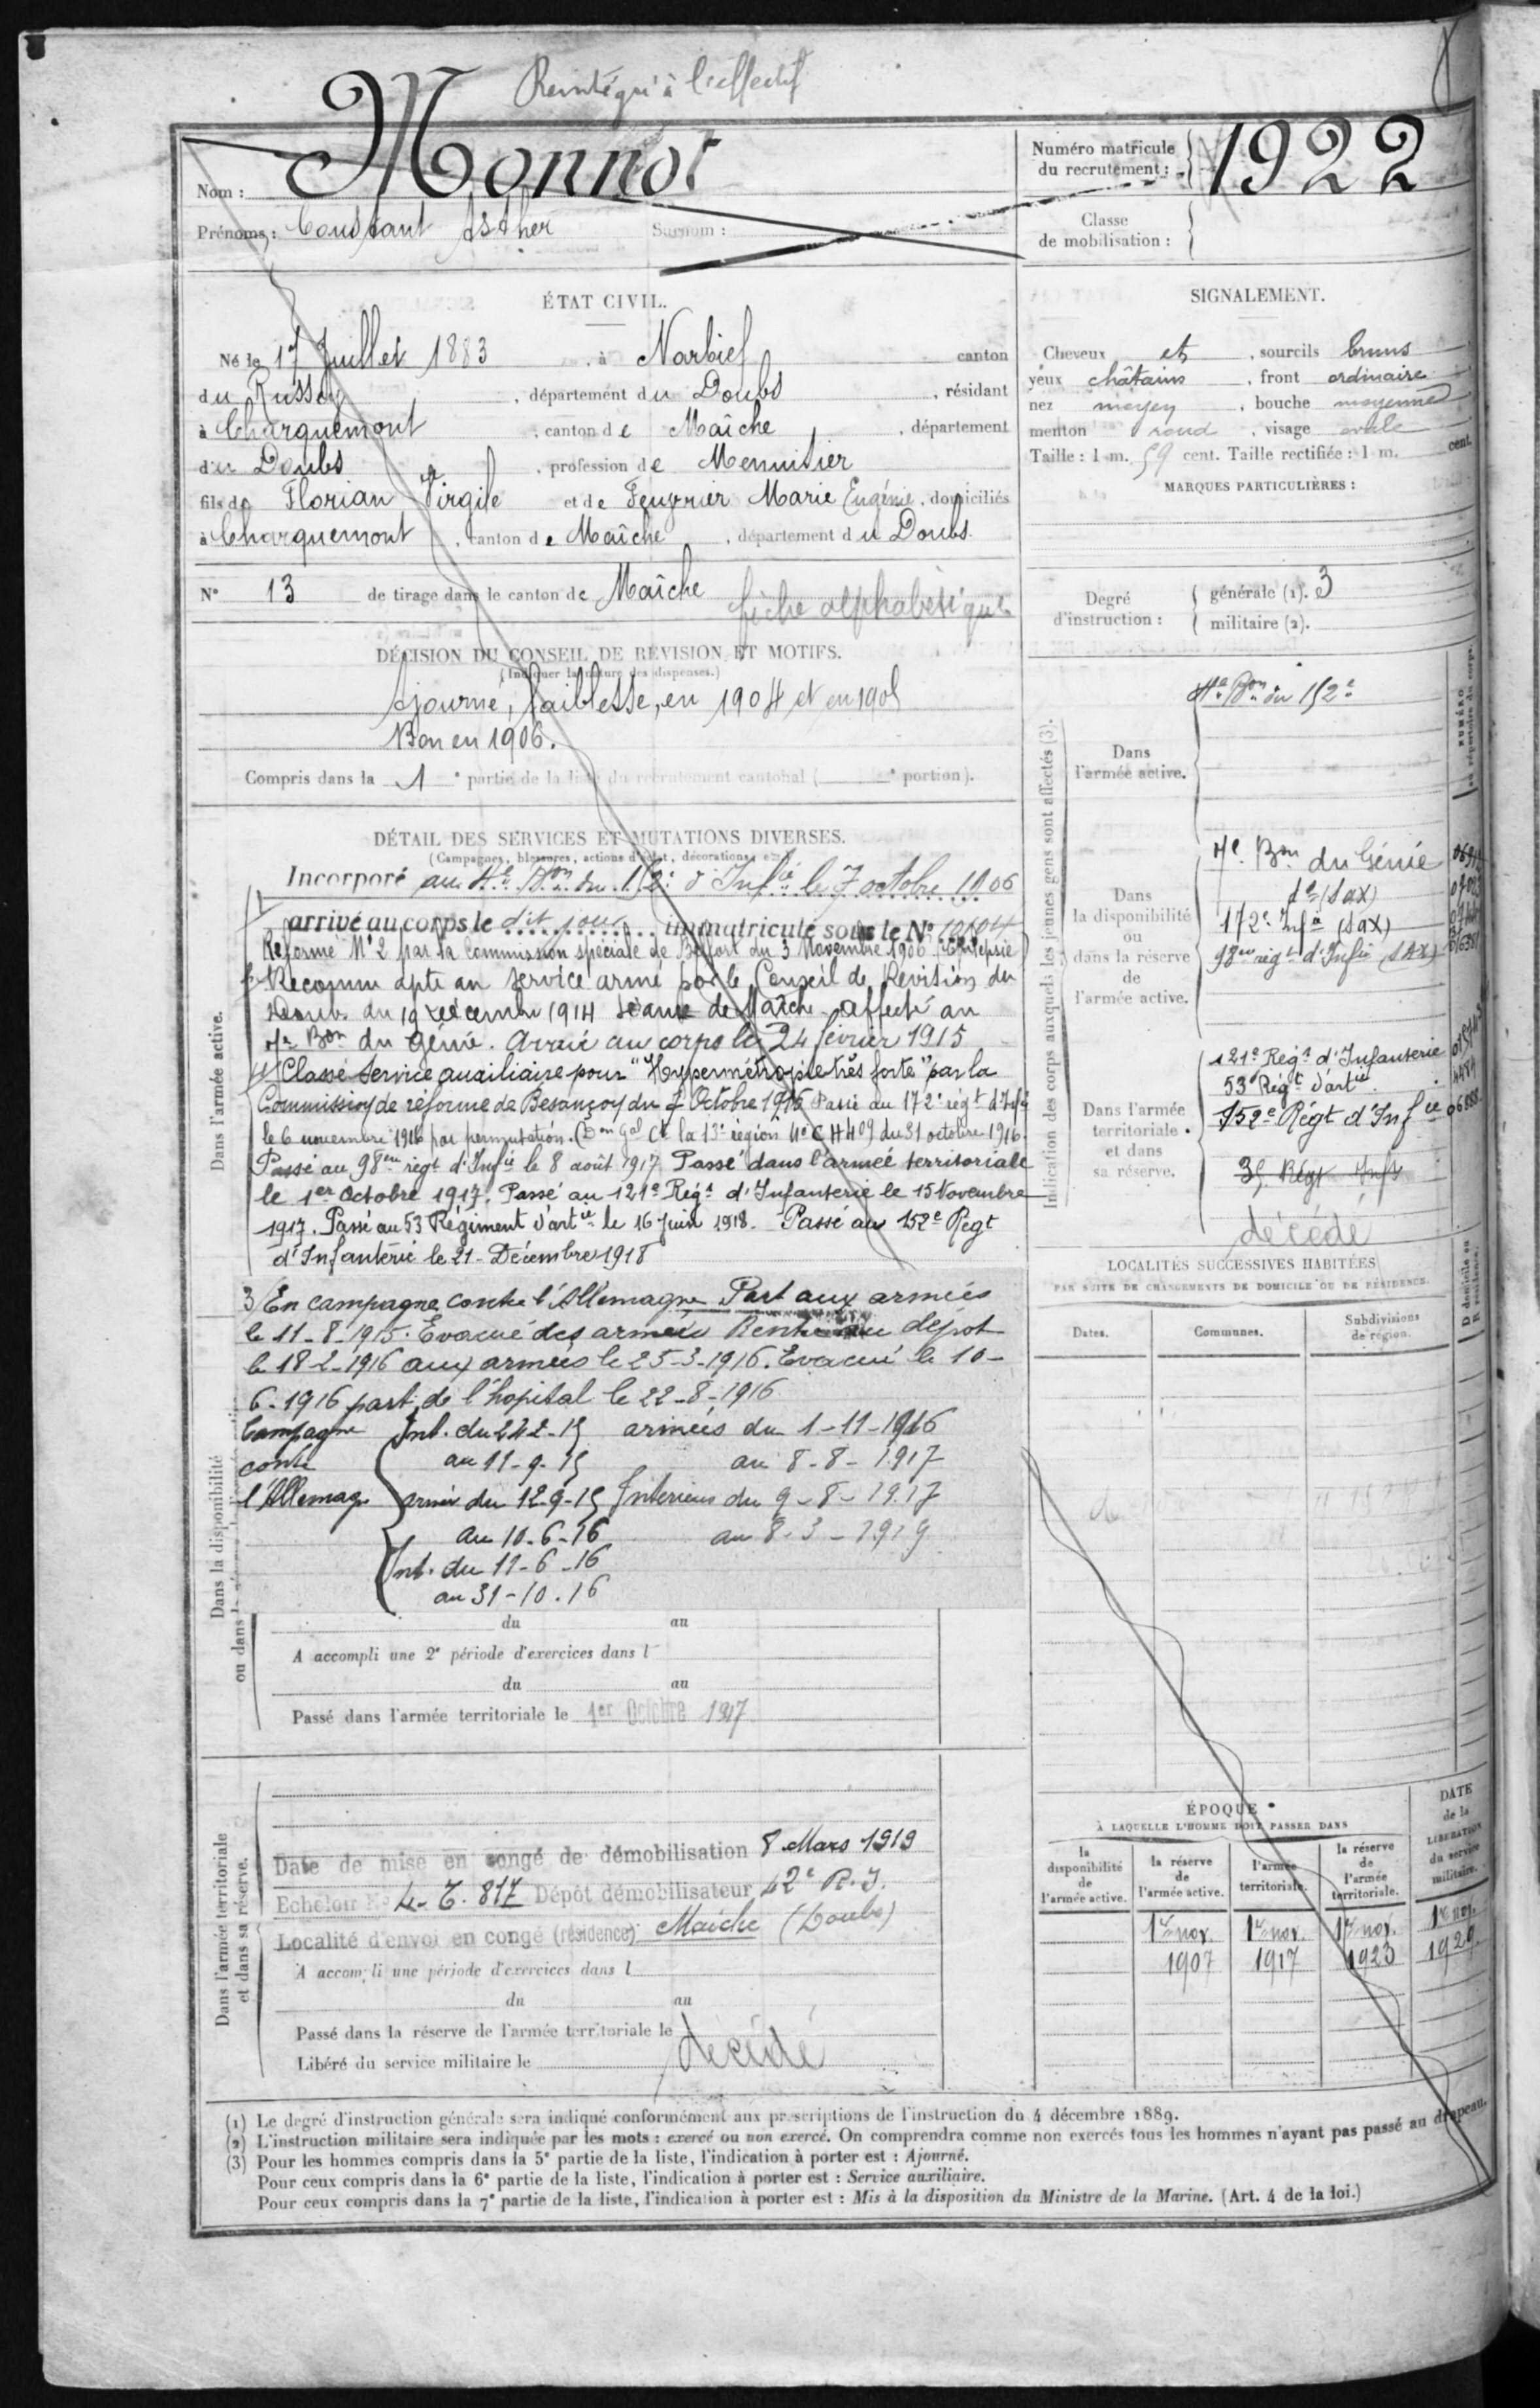 Réintégré à l'effectif
Nom : Monnot
Prénoms : Constant Esther Surnom :
Numéro matricule du recrutement : 1922
Classe de mobilisation :
ÉTAT CIVIL.
Né le 17 Juillet 1883, à Narbief canton
du Russey, département du Doubs, résidant
à Charquemont, canton de Maîche, département
du Doubs, profession de Menuisier
fils de Florian Virgile et de Feuvrier Marie Eugénie, domiciliés
à Charquemont, canton de Maîche, département du Doubs.
N° 13 de tirage dans le canton de Maîche
fiche alphabétique
SIGNALEMENT.
Cheveux et, sourcils bruns
yeux châtains, front ordinaire
nez moyen, bouche moyenne
menton rond, visage ovale
Taille : 1 m. 59 cent. Taille rectifiée : 1 m. cent.
MARQUES PARTICULIÈRES :
Degré d'instruction : générale (1). 3
militaire (2).
DÉCISION DU CONSEIL DE RÉVISION ET MOTIFS.
(Indiquer la nature des dispenses.)
Ajourné, faiblesse, en 1904 et en 1905
Bon en 1906.
Compris dans la 1e partie de la liste du recrutement cantonal ( e portion).
DÉTAIL DES SERVICES ET MUTATIONS DIVERSES.
(Campagnes, blessures, actions d'éclat, décorations, etc.)
Dans l'armée active.
Incorporé au 4e Bon du 152e d'Infie le 7 octobre 1906
arrivé au corps le dit jour immatriculé sous le N°
Réformé N° 2 par la Commission spéciale de Belfort du 3 Novembre 1906
Reconnu apte au service armé par le Conseil de Revision du
Doubs du 19 décembre 1914 séance de Maîche. Affecté au
7e Bon du Génie. Arrivé au corps le 24 février 1915
Classé Service auxiliaire pour "Hypermétropie très forte" par la
Commission de réforme de Besançon du 7 Octobre 1916 Passé au 172e régt d'Infie
le 6 novembre 1916 par permutation. (Don Gal Ct la 13e région 4e C H 409 du 31 octobre 1916.
Passé au 98me régt d'Infie le 8 août 1917 Passé dans l'armée territoriale
le 1er Octobre 1917. Passé au 121e Régt d'Infanterie le 15 Novembre
1917. Passé au 53 Régiment d'artie le 16 juin 1918. Passé au 152e Régt
d'Infanterie le 21 - Décembre 1918
Dans la disponibilité
ou dans
3/ En campagne contre l'Allemagne Part aux armées
le 11-8-1915. Evacué des armées Rentre au dépot
le 18-2-1916 aux armées le 25-3-1916. Evacué le 10-
6-1916 part de l'hopital le 22-8-1916
Campagne contre l'Allemag.
Int. du 24 2-15 armées du 1-11-1916
au 11-9-15 au 8-8-1917
armée du 12-9-15 Intérieur du 9-8-1917
au 10-6-16 au 8-3-1919
Int. du 11-6-16
au 31-10.16
du au
A accompli une 2e période d'exercices dans l
du au
Passé dans l'armée territoriale le 1er Octobre 1917
Dans l'armée territoriale et dans sa réserve.
Date de mise en congé de démobilisation 8 Mars 1919
Echelon N° 4-6.817 Dépôt démobilisateur 42e R.I.
Localité d'envoi en congé (résidence) Maiche (Doubs)
A accompli une période d'exercices dans l
du au
Passé dans la réserve de l'armée territoriale le
Libéré du service militaire le
décédé
Indication des corps auxquels les jeunes gens sont affectés (3).
Dans l'armée active.
4e Bon du 152e
Dans la disponibilité ou dans la réserve de l'armée active.
7e Bon du Génie
do (Sax)
172e Infie (Sax)
98me régt d'Infie (Sax)
Dans l'armée territoriale et dans sa réserve.
121e Régt d'Infanterie
53 Régt d'artie
152e Régt d'Infie 06888
35 Régt Infie
décédé
LOCALITÉS SUCCESSIVES HABITÉES
PAR SUITE DE CHANGEMENTS DE DOMICILE OU DE RÉSIDENCE.
Dates. Communes. Subdivisions de région. D domicile ou R résidence.
ÉPOQUE
À LAQUELLE L'HOMME DOIT PASSER DANS
la disponibilité de l'armée active. la réserve de l'armée active. l'armée territoriale. la réserve de l'armée territoriale. DATE de la LIBÉRATION du service militaire.
1er nov. 1er nov. 1er nov. 1er nov.
1907 1917 1923 1929
(1) Le degré d'instruction générale sera indiqué conformément aux prescriptions de l'instruction du 4 décembre 1889.
(2) L'instruction militaire sera indiquée par les mots : exercé ou non exercé. On comprendra comme non exercés tous les hommes n'ayant pas passé au drapeau.
(3) Pour les hommes compris dans la 5e partie de la liste, l'indication à porter est : Ajourné.
Pour ceux compris dans la 6e partie de la liste, l'indication à porter est : Service auxiliaire.
Pour ceux compris dans la 7e partie de la liste, l'indication à porter est : Mis à la disposition du Ministre de la Marine. (Art. 4 de la loi.)